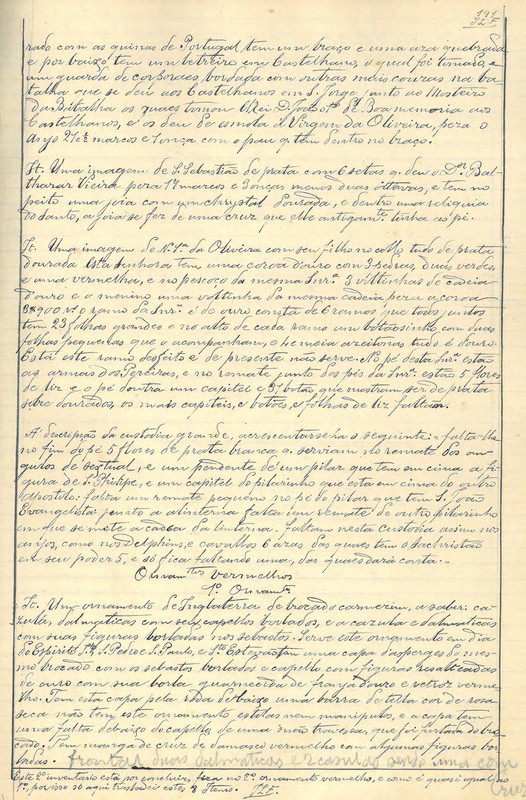 191
J.L.F.
rado com as quinas de Portugal tem um braço e uma aza quebrada
e por baixo tem um letreiro em Castelhano, o qual foi tomado, e
um guarda de corporaes bordada com outras mais cousas na ba-
talha que se deu aos Castelhanos em S. Jorge junto ao Mosteiro
da Batalha os quaes tomou El Rei D. João 1º de Boa memoria aos
Castelhanos, e os deu de esmola á Virgem da Oliveira, peza o
Anjo marcos e 1 onça com o pau q. tem dentro no braço.
It. Uma imagem de S. Sebastião de prata com 6 setas q. deu o Dor Bal-
thazar Vieira peza 19 marcos e 3 onças menos duas oitavas, e tem no
peito uma joia com um chrystal dourada, e dentro uma reliquia
do Santo, a joia se fez de uma cruz que elle antigamte tinha ao pé.
It. Uma imagem de N. Sra da Oliveira com seu filho no collo tudo de prata
dourada. Esta Senhora tem uma coroa d'ouro com 3 pedras, duas verdes,
e uma vermelha, e no pescoço da mesma Snra 3 voltinhas de cadeia
d'ouro e o menino uma voltinha da mesma cadeia peza a coroa
o ramo da Snra é de ouro consta de 6 ramos que todos juntos
tem 23 folhas grandes e no alto de cada ramo um botãosinho com duas
folhas pequenas que o acompanham, e 4 meia azeitonas tudo d'ouro.
Está este ramo desfeito e de presente não serve. No pé desta Snra estão
as armas dos Pereiras, e no remate junto dos pés da Snra estão 5 flores
de liz e o pé doutra um capitel e 3 botões que mostram ser de prata
sobre dourados, os mais capiteis, e botões, e folhas de liz faltam.
A' descripção da custodia grande, acrescentasse-ha o seguinte: falta-lhe
no fim do pé 5 flores de prata branca q. serviam no remate dos an-
gulos de sextual, e um pendente de um pilar que tem em cima a fi-
gura de S. Philipe, e um capitel do pilarinho que esta em cima do outro
Apostolo: falta um remate pequeno no pé do pilar que tem S. João
Evangelista: junto a alinterna falta um remate de outro pilarinho
em que se mete a cadea da linterna. Faltam nesta custodia assim nos
anjos, como nos Delphins, e cavalhos 6 azas das quaes tem o sachristão
em seu poder 5, e só fica faltando uma, das quaes dará conta.
Ornamtos vermelhos
1º Ornamto
It. Um ornamento de Inglaterra de brocado carmezim, a saber: ca-
zula, dalmaticas com seus capellos bordados, e a cazula e dalmaticas
com suas figuras bordadas nos sebastos. Serve este ornamento em dia
do Espirito Sto, S. Pedro e S. Paulo, e tem uma capa d'asperges do mes-
mo brocado com os sebastos bordados e capello com figuras resaltadas
de ouro com sua borla guarnecida de franja d'ouro e retroz verme-
lho. Tem esta capa pela roda debaixo uma barra de telilha cor de rosa
seca não tem este ornamento estolas nem manipulos, e a capa tem
uma falta debaixo do capello de uma mão travessa, que foi furtada do bro-
cado. Tem manga de cruz de damasco vermelho com algumas figuras bor-
dadas. Frontal, duas dalmaticas e serve uma com
cruz
Este 2º inventario esta por concluir, fica no 2º ornamento vermelho, e como é quasi igual ao
1º, por isso só aqui trasladei estes 8 itens. J.L.F.